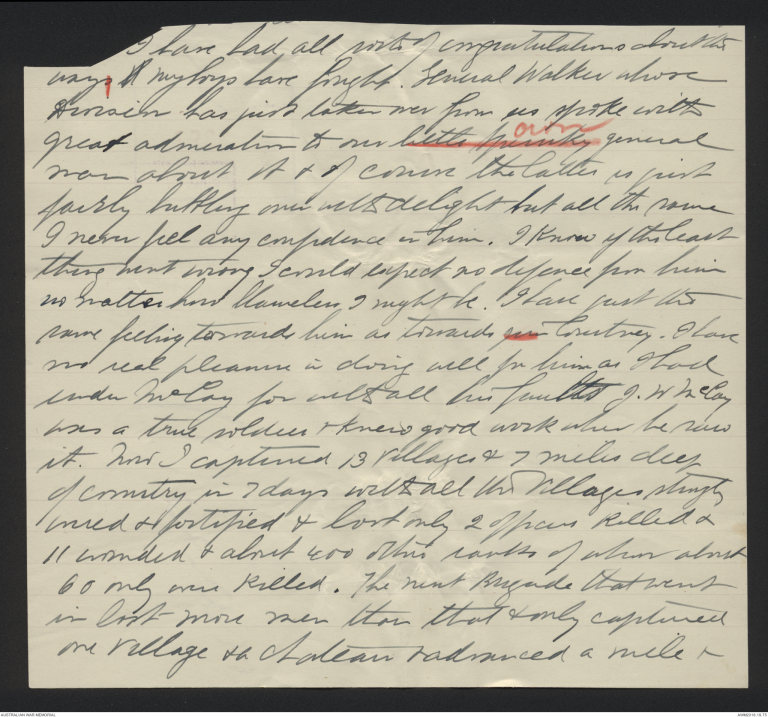 I have had all sorts of congratulations about the
ways my boys have fought. General Walker whose
Division has just taken over from us spoke with
great admiration to our little spunky own general
man about it & of course the latter is just
fairly bubbling over with delight but all the same
I never feel any confidence in him. I know if the least
thing went wrong I could expect no defence from him
no matter how blameless I might be. I have just the
same feeling towards him as towards Courtney. I have
no real pleasure in doing well for him as I had
under McCay for with all his faults J. W McCay
was a true soldier & knew good work when he saw
it. Now I captured 13 villages & 7 miles deep
of country in 7 days with all the Villages strongly
wired & fortified & lost only 2 officers killed &
11 wounded & about 400 other ranks of whom about
60 only were killed. The next Brigade that went
in lost more men than that & only captured
one Village & a chateau & advanced a mile &
AUSTRALIAN WAR MEMORIAL